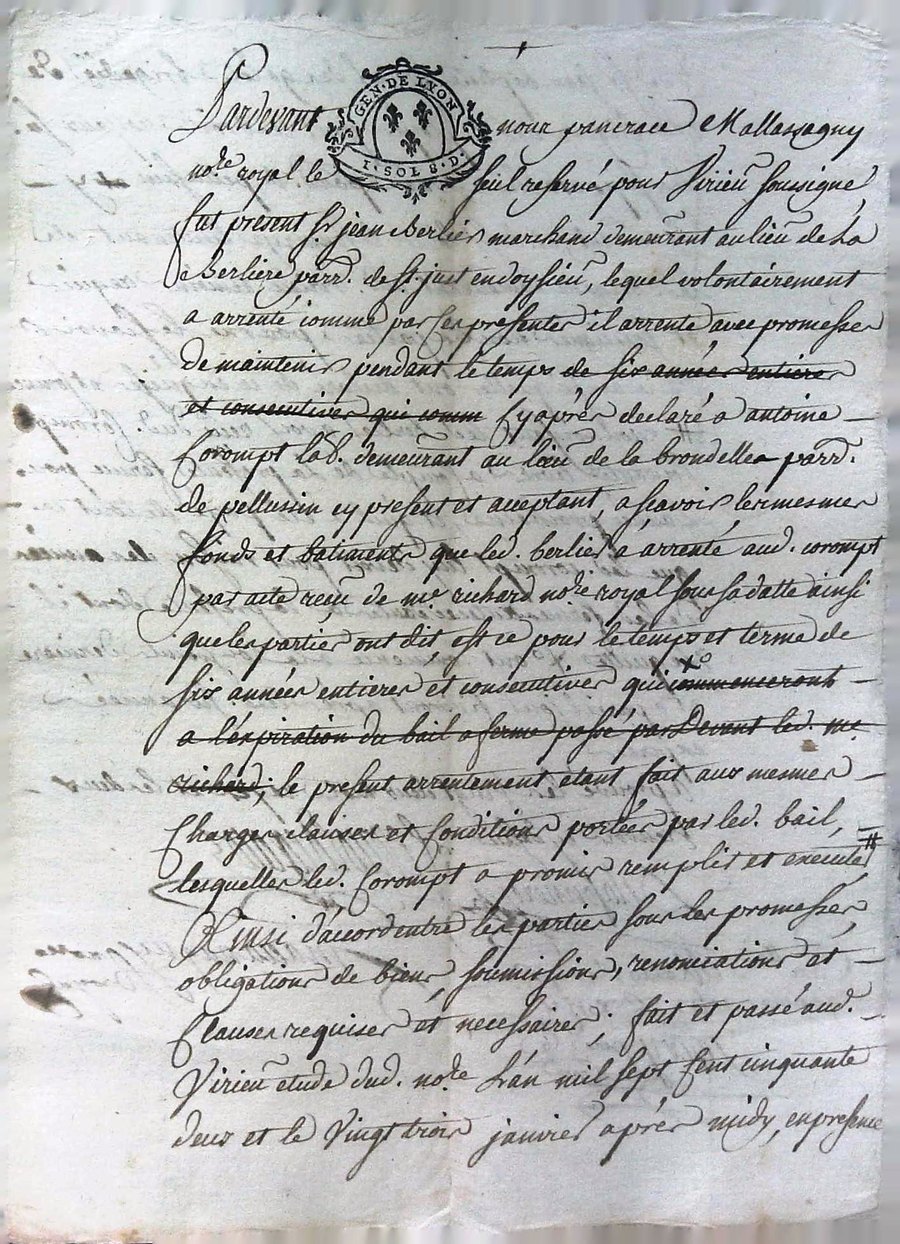 GEN · DE LYON
1 · SOL 8 · D ·
Pardevant nour pancrace Mallassagny
no.re royal le seul reservé pour Virieu soussigné
fut present sr. jean Berlier marchand demeurant au lieu de La
Berliere parr. de st. just en doysieu, lequel volontairement
a arrenté comme par ses presenter il arrente avec promesser
de maintenir pendant le temps de six années entierer
et consecutiver qui comm cy aprér declaré a antoine
Corompt lab. demeurant au lieu de la brondelle parr.
de pellussin cy present et aceptant, a scavoir lermesmer
fonds et batiments que led. berlier a arrenté aud. corompt
par acte reçu de me. richard no.re royal sour sa datte ainsi
que ler partier ont dit, est ce pour le temps et terme de
six annéer entierer et consecutiver qui commenceront x°
a l'expiration du bail a ferme passé par Devant led. me.
richard; le present arrentement etant fait aux mesmer
Charger clauser et Conditions portéer par led. bail,
lesqueller led. Corompt a promir remplir et executer #
Ainsi d'accord entre ler partier sour ler promesser,
obligations de bienr, soumissions, renonciations et
Clauser requiser et necessairer; fait et passé aud.
Virieu etude dud. no.re L'an mil sept Cent cinquante
deux et le Vingt troir janvier aprér midy, en presence